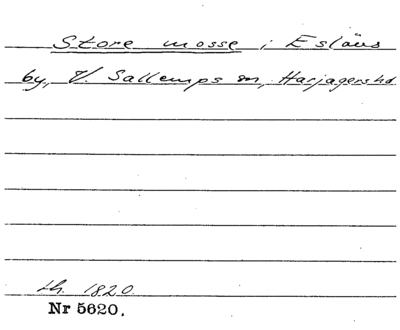 Store mosse i Eslövs
by, V. Sallerups sn, Harjagers hd
Lh. 1820.
Nr 5620.